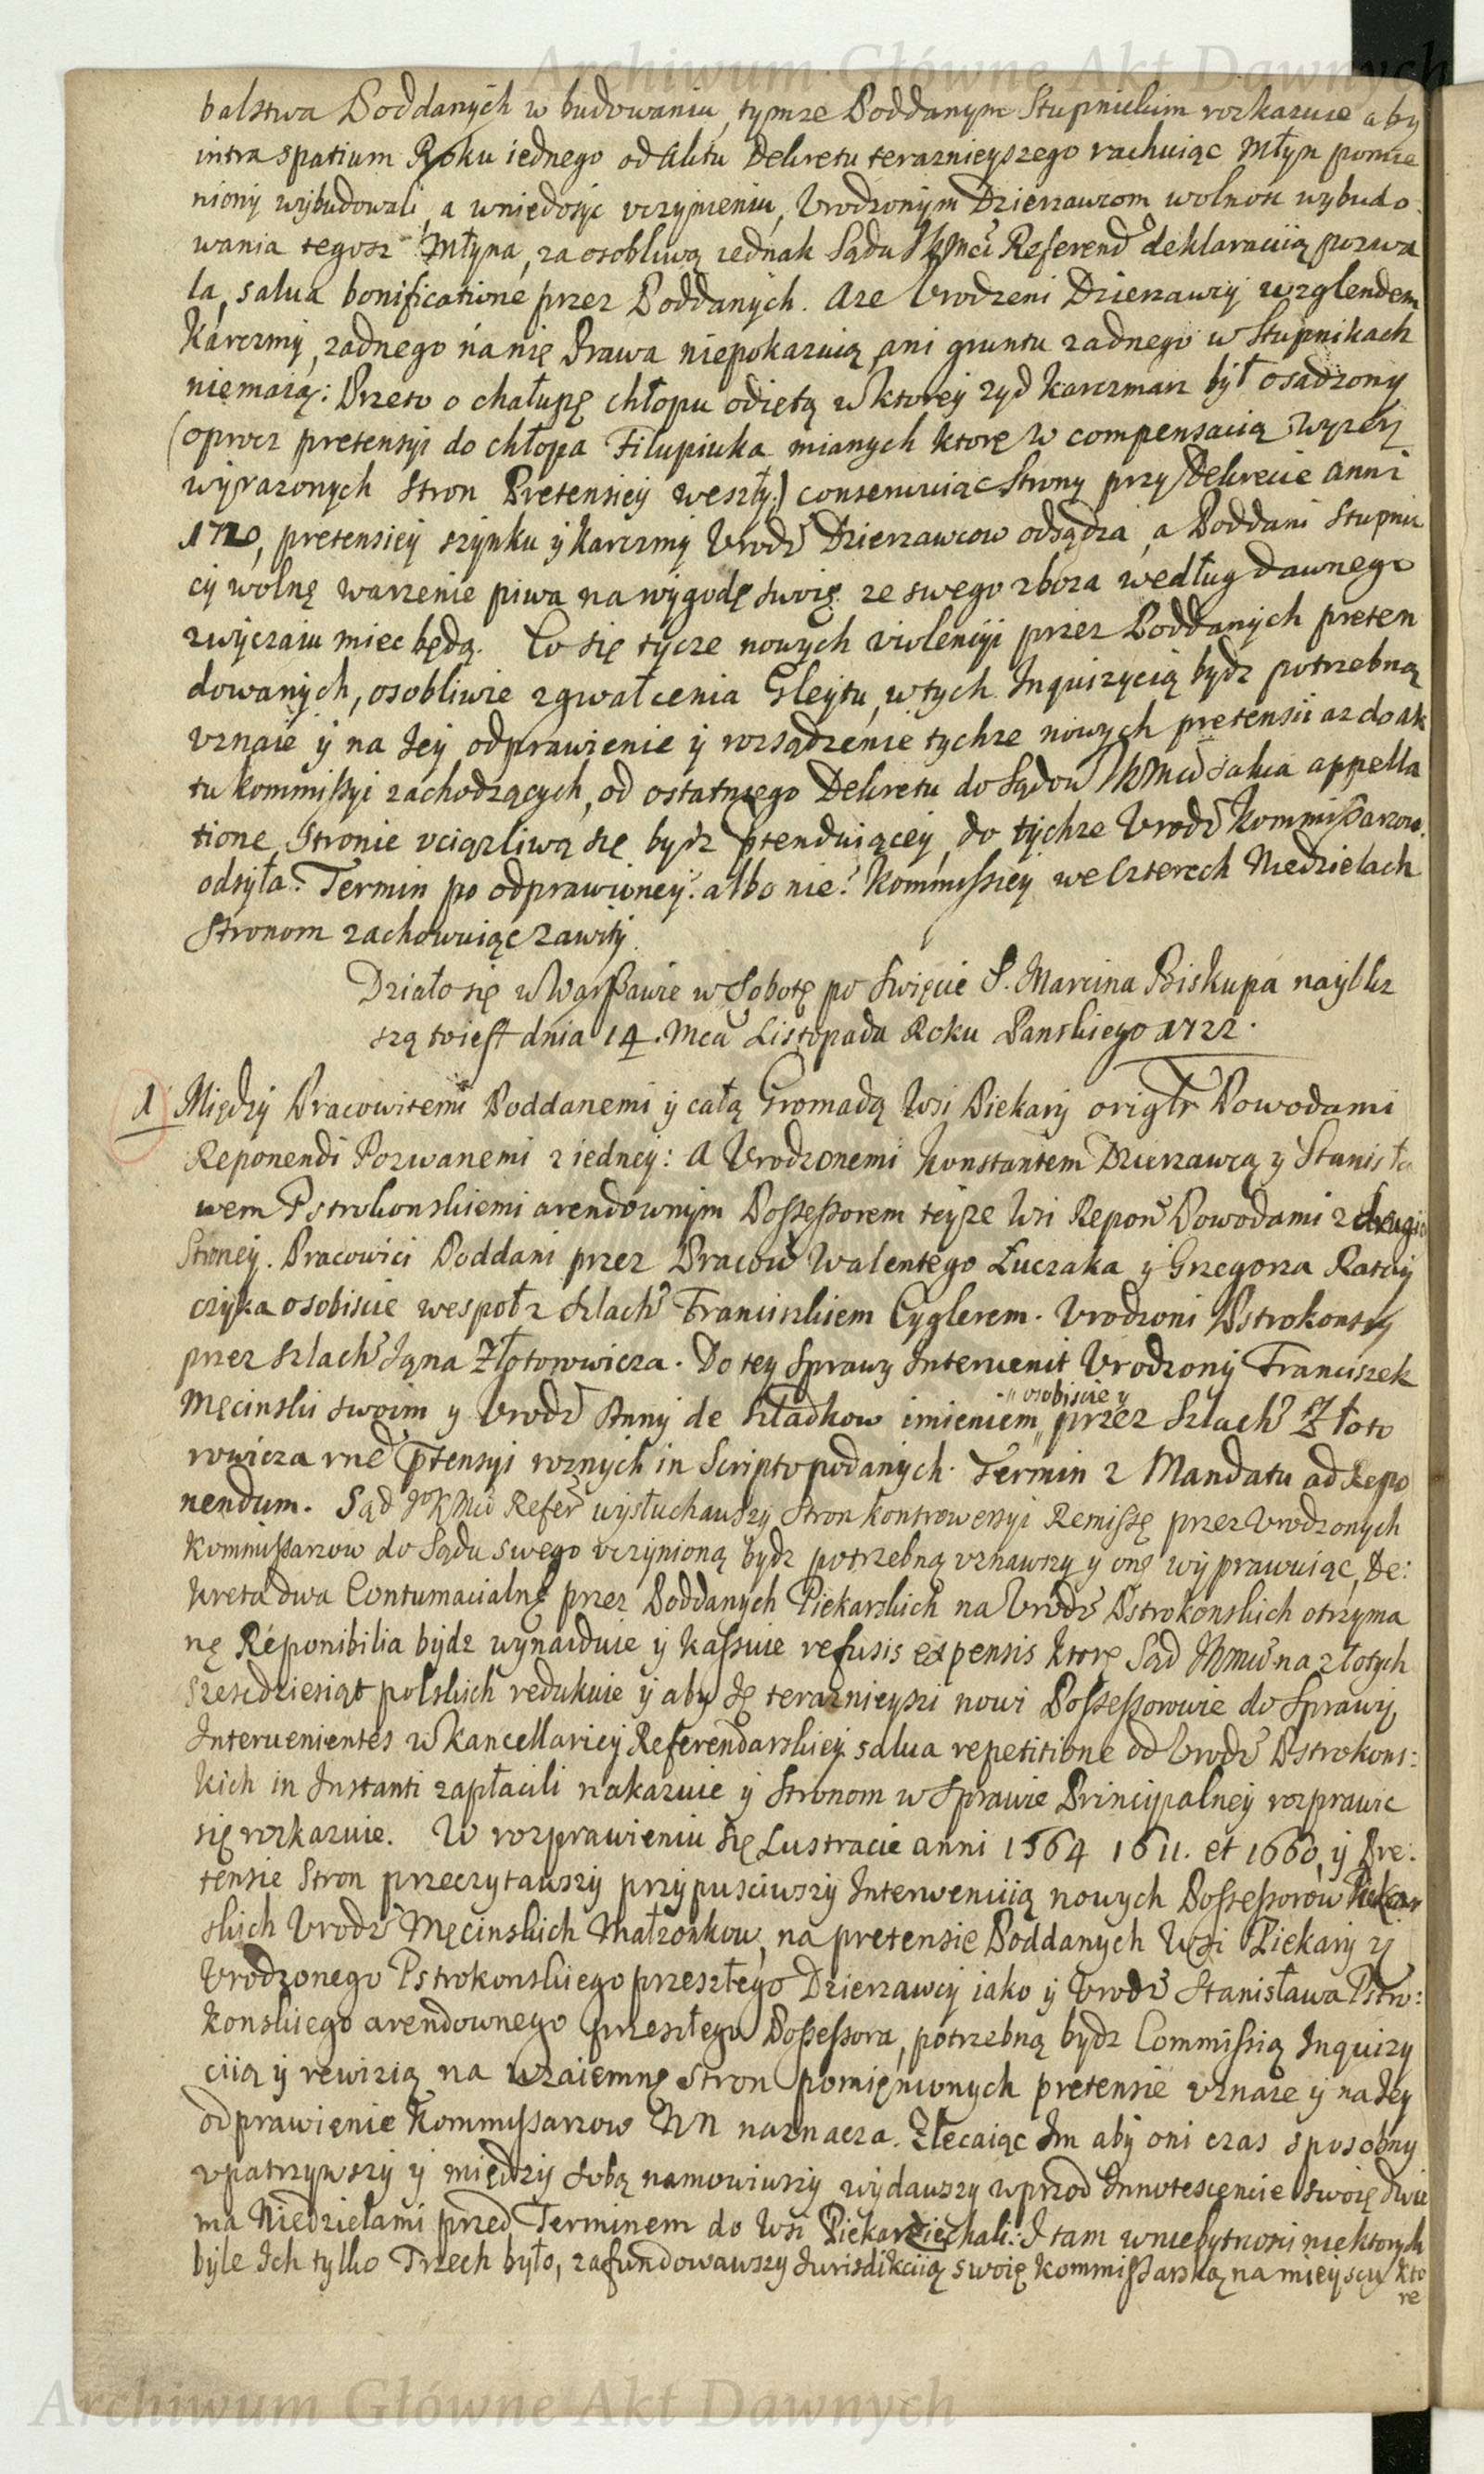 Archiwum Główne Akt Dawnych
balstwa Poddanych w budowaniu, tymze Poddanym Stupnickim rozkazuie aby
intra spatium Roku iednego od Aktu Dekretu teraznieyszego rachuiąc Młyn pomie
niony wybudowali, a wniedosyc vczynieniu, Vrodzonym Dzierzawcom wolnosc wybudo
wania tegosz Młyna, za osobliwą iednak Sądu JKMci Referend deklaracyią pozwa
la, salua bonificatione przez Poddanych. Aze Vrodzeni Dzierzawcy wzglendem
Karczmy, zadnego na nię Prawa niepokazuią, ani gruntu zadnego w Stupnikach
niemaią: Przeto o chałupę chłopu odiętą w ktorey zyd karczmarz był osadzony
(oprocz pretensyi do chłopa Filupiuka mianych ktorę w compensacią wyzey
wyrazonych stron Pretensiey weszły) conseruuiąc Strony przy Dekrecie anni
1720, pretensiey szynku y Karczmy Vrodz Dzierzawcow odsądza, a Poddani Stupnic
cy wolnę warzenie piwa na wygodę swoię ze swego zboza według dawnego
zwyczaiu miec będą. Co się tycze nowych violencyi przez Poddanych preten
dowanych, osobliwie zgwałcenia Gleytu, w tych Inquizycią bydz potrzebną
vznaie y na Jey odprawienie y rozsądzenie tychze nowych pretensii az do ak
tu kommissyi zachodzących, od ostatniego Dekretu do Sądow JKMci salua appella
tione Stronie vciązliwą się bydz ptenduiącey, do tychze Vrodz Kommissarzow
odsyła. Termin po odprawioney albo nie? Kommissiey we Czterech Niedzielach
Stronom zachowuiąc zawity.
Działo się w Warszawie w Sobotę po Swięcie S. Marcina Biskupa naybliz
szą to iest dnia 14. Mca Listopada Roku Panskiego 1722.
1 Między Pracowitemi Poddanemi y całą Gromadą Wsi Piekary origłr Powodami
Reponendi Pozwanemi z iedney: A Vrodzonemi Konstantem Dzierzawcą y Stanisła
wem Pstrokonskiemi arendownym Possessorem teyze Wsi Repon Powodami z drugie
Stroney. Pracowici Poddani przez Pracow Walentego Łuczaka y Grzegorza Ratay
czyka osobiscie wespoł z szlach Franciszkiem Cyglerem. Vrodzoni Pstrokonscy
przez szlach Jana Złotowicza. Do tey Sprawy Interuenit Vrodzony Franciszek
Męcinski swoim y Vrodz Anny de Szładkow imieniem „osobiscie y„ przez Szlach Złoto
rowicza rne ptensyi roznych in Scripto podanych. Termin z Mandatu ad Repo
nendum. Sąd JoKMci Refer wysłuchawszy Stron kontrowersyi Remissę przez Vrodzonych
Kommissarzow do Sądu swego vczynioną bydz potrzebną vznawszy y onę wyprawuiąc, De:
kreta dwa Contumacialnę przez Poddanych Piekarskich na Vrodz Pstrokonskich otrzyma
nę Reponibilia bydz wynayduie y kassuie refusis expensis ktorę Sąd JKMci na złotych
szescdziesiąt polskich redukuie y aby Ię teraznieyszi nowi Possessorowie do Sprawy
Interuenientes w Kancellariey Referendarskiey salua repetitione od Vrodz Pstrokons:
kich in Instanti zapłacili nakazuie y Stronom w Sprawie Principalney rozprawic
się rozkazuie. W rozprawieniu się Lustracie anni 1564 1611. et 1660, y Pre:
tensie Stron przeczytawszy przypusciwszy Interwencią nowych Possessorow Piekar
skich Vrodz Męcinskich Małzonkow, na pretensie Poddanych Wsi Piekary y
Vrodzonego Pstrokonskiego przeszłego Dzierzawcy iako y Vrodz Stanisława Pstro:
konskiego arendownego przeszłego Possessora, potrzebną bydz Commissią Inquizy
ciią y rewizią na wzaiemnę stron pomięnionych pretensie vznaie y na Jey
odprawienie Kommyssarzow NN naznacza. Zlecaiąc Im aby oni czas sposobny
vpatrzywszy y między sobą namowiwszy wydawszy wprzod Innotescencie swoię dwie
ma Niedzielami przed Terminem do Wsi Piekar ziechali: I tam w niebytnosci niektorych
byle Ich tylko Trzech było, zafundowawszy Iurisdikciią swoię Kommissarską na mieyscu kto
re
Archiwum Główne Akt Dawnych